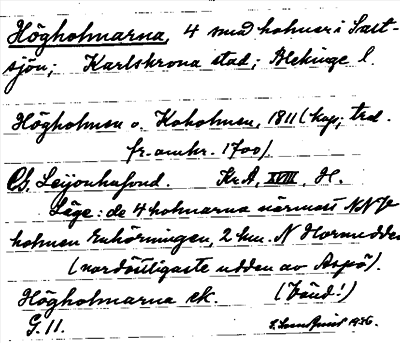 Högholmarna, 4 små holmar i Salt-
sjön; Karlskrona stad; Blekinge l.
Högholmen o. Koholmen, 1811 (kop; trol.
fr. omkr. 1700).
Gs. Leijonhufvud. Kr. A, XVIII, H.
Läge: de 4 holmarna närmast NNV
holmen Enhörningen, 2 km. N Hornudden
(nordöstligaste udden av Aspö).
Högholmarna ek. (Vänd!)
G. 11. 1936.